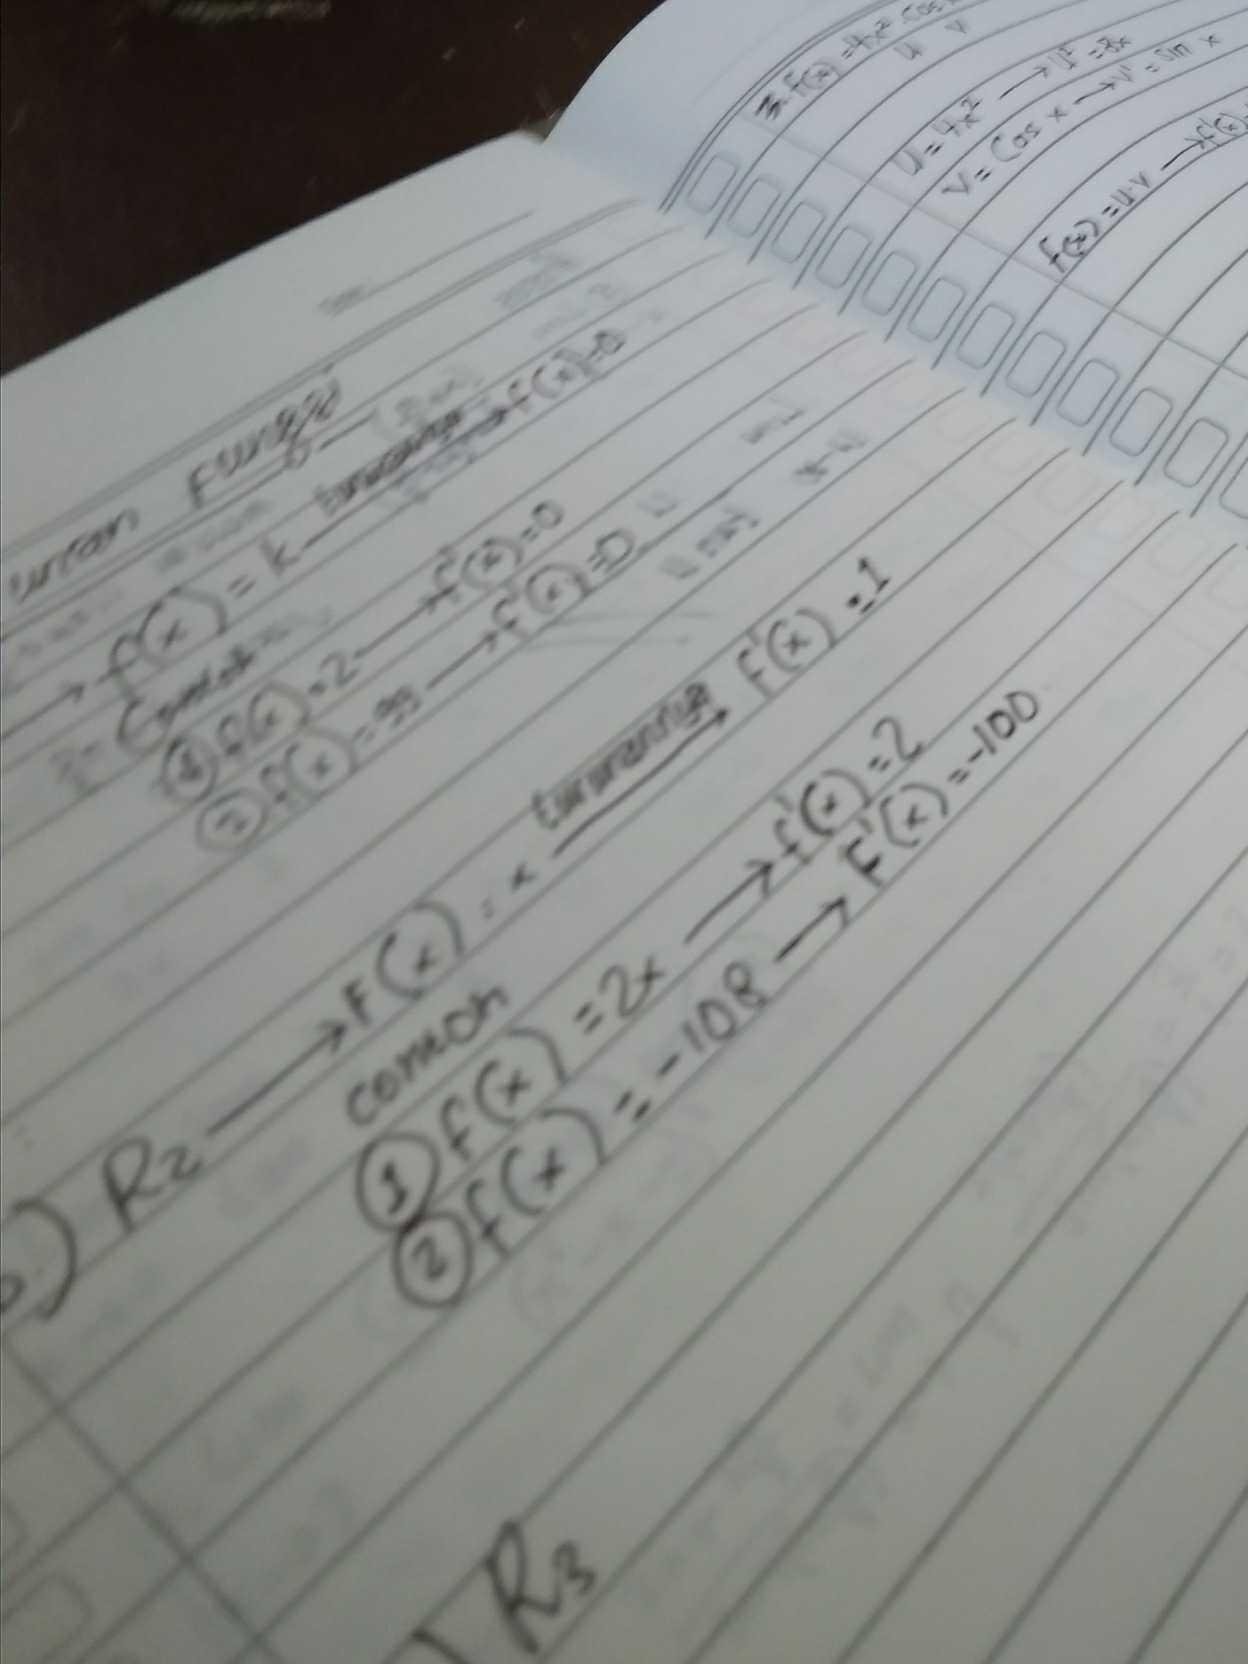 Turunan Fungsi
→ f(x) = k turunannya → f'(x) = 0
Contoh
① f(x) = 2 → f'(x) = 0
② f(x) = 99 → f'(x) = 0
b.) R2 → F(x) = x turunannya F'(x) = 1
contoh
① f(x) = 2x → f'(x) = 2
② f(x) = -108 → F'(x) = -100
R3
3. f(x) = 4x² . cos x
u v
u = 4x² → u' = 8x
v = Cos x → v' = sin x
f(x) = u.v → f'(x) =